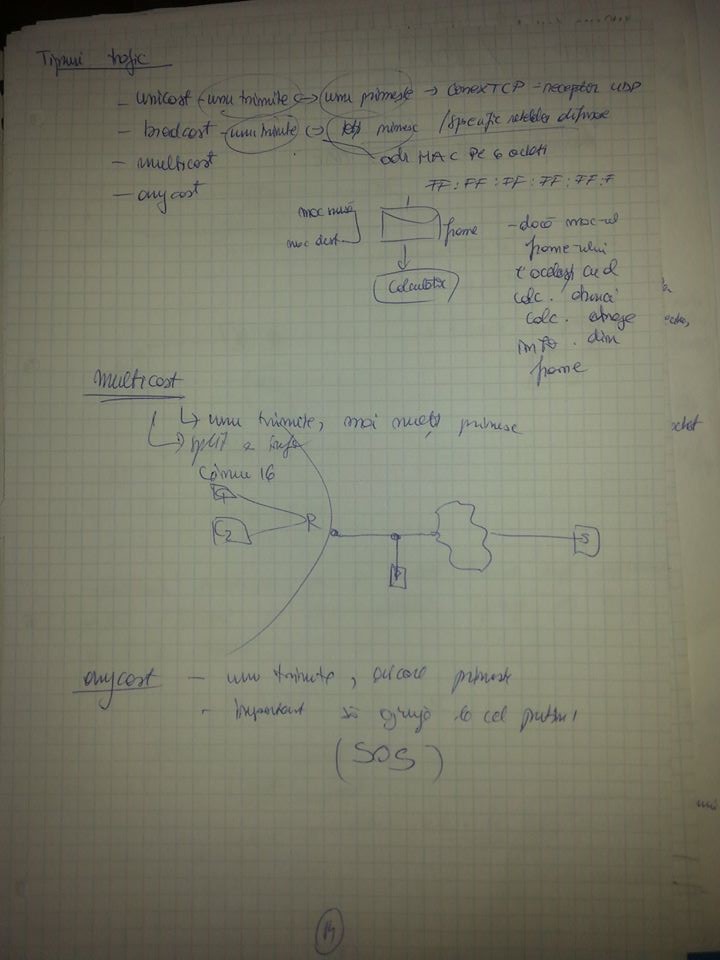 Tipuri trafic
- unicast - unu trimite <-> unu primeste -> conex TCP - receptor UDP
- brodcast - unu trimite <-> toți primesc / specific retelelor difuzare
- multicast
adr MAC pe 6 octeti
- anycast
FF : FF : FF : FF : FF : F
mac sursă
mac dest
frame
calculator
- dacă mac-ul
frame-ului
e acelasi cu al
calc. atunci
calc. extrage
info. din
frame
multicast
unu trimite, mai mulți primesc
split a info
C1
C2
R
S
anycast - unu trimite, oricare primeste
- important să ajungă la cel putin 1
(SOS)
14